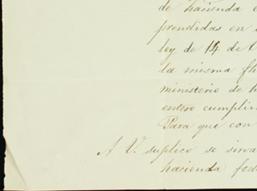 de hacienda
prendidas en
ley de 14 de
la misma
ministerio de
entero cumplim
Para que con
A V. suplico se sirva
hacienda fede